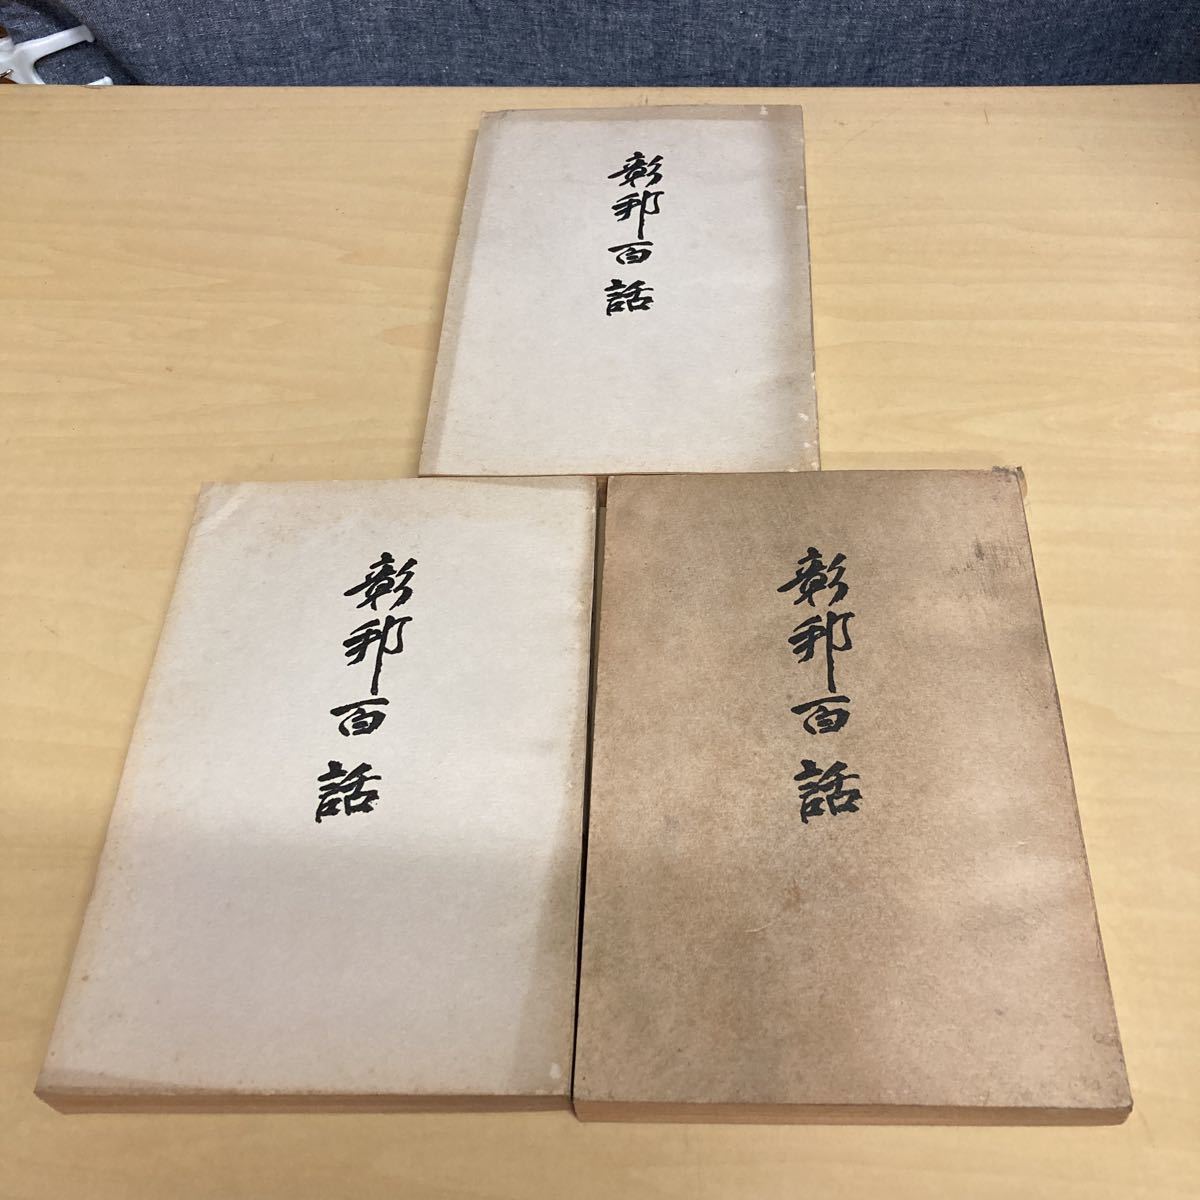 彰邦百話
彰邦百話
彰邦百話